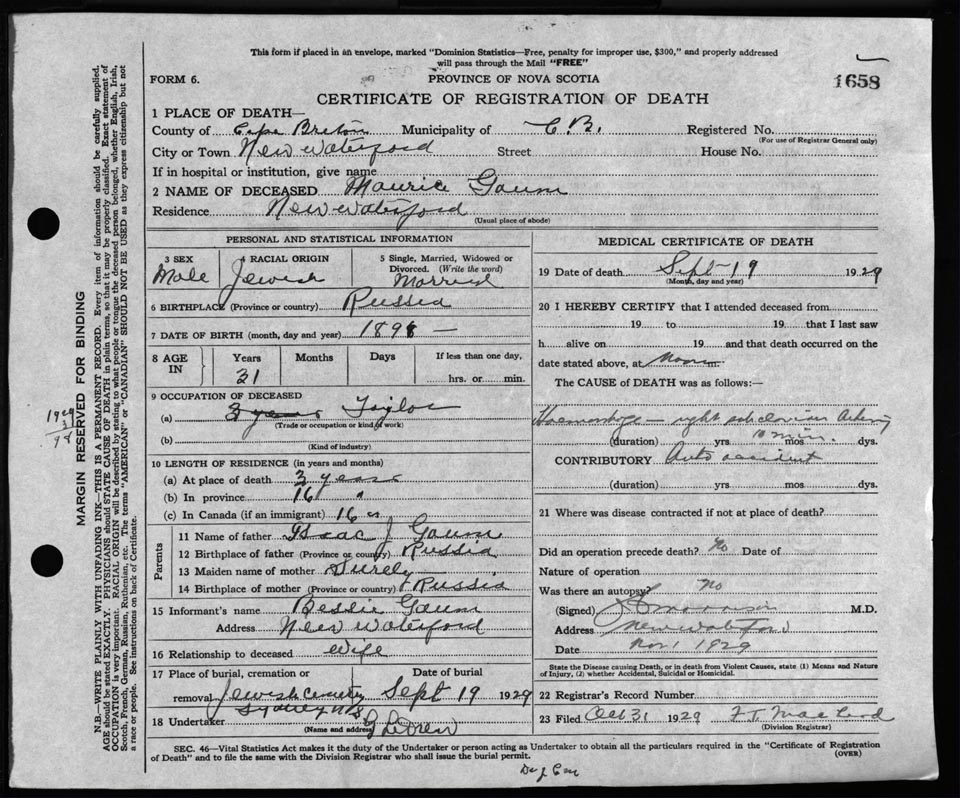 This form if placed in an envelope, marked "Dominion Statistics—Free, penalty for improper use, $300," and properly addressed
will pass through the Mail "FREE"
FORM 6. PROVINCE OF NOVA SCOTIA 1658
CERTIFICATE OF REGISTRATION OF DEATH
1 PLACE OF DEATH—
County of Cape Breton Municipality of C. B. Registered No.
(For use of Registrar General only)
City or Town New Waterford Street House No.
If in hospital or institution, give name
2 NAME OF DECEASED Maurice Gaum
Residence New Waterford
(Usual place of abode)
PERSONAL AND STATISTICAL INFORMATION
3 SEX 4 RACIAL ORIGIN 5 Single, Married, Widowed or
Divorced. (Write the word)
Male Jewish Married
6 BIRTHPLACE (Province or country) Russia
7 DATE OF BIRTH (month, day and year) 1898 —
8 AGE IN Years Months Days If less than one day,
31 hrs. or min.
9 OCCUPATION OF DECEASED
(a) 3 years Tailor
(Trade or occupation or kind of work)
(b)
(Kind of industry)
10 LENGTH OF RESIDENCE (in years and months)
(a) At place of death 3 years
(b) In province 16 "
(c) In Canada (if an immigrant) 16 "
Parents
11 Name of father Isaac J Gaum
12 Birthplace of father (Province or country) Russia
13 Maiden name of mother Surely
14 Birthplace of mother (Province or country) Russia
15 Informant's name Bessie Gaum
Address New Waterford
16 Relationship to deceased Wife
17 Place of burial, cremation or Date of burial
removal Jewish Sept 19 1929
Sydney N S
18 Undertaker
(Name and address)
MEDICAL CERTIFICATE OF DEATH
19 Date of death Sept 19 1929
(Month, day and year)
20 I HEREBY CERTIFY that I attended deceased from
19 to 19 that I last saw
h alive on 19 and that death occurred on the
date stated above, at Noon
The CAUSE of DEATH was as follows:—
Haemorrhage — right subclavian Artery
(duration) yrs mos 10 min. dys.
CONTRIBUTORY Auto accident
(duration) yrs mos dys.
21 Where was disease contracted if not at place of death?
Did an operation precede death? No Date of
Nature of operation
Was there an autopsy? No
(Signed) Morrison M.D.
Address New Waterford
Date Nov 1 1929
State the Disease causing Death, or in death from Violent Causes, state (1) Means and Nature
of Injury, (2) whether Accidental, Suicidal or Homicidal.
22 Registrar's Record Number
23 Filed Oct 31 1929 F. T. MacLeod
(Division Registrar)
SEC. 46—Vital Statistics Act makes it the duty of the Undertaker or person acting as Undertaker to obtain all the particulars required in the "Certificate of Registration
of Death" and to file the same with the Division Registrar who shall issue the burial permit. (OVER)
MARGIN RESERVED FOR BINDING
1929
31
98
N.B.—WRITE PLAINLY WITH UNFADING INK—THIS IS A PERMANENT RECORD. Every item of information should be carefully supplied.
AGE should be stated EXACTLY. PHYSICIANS should STATE CAUSE OF DEATH in plain terms, so that it may be properly classified. Exact statement of
OCCUPATION is very important. RACIAL ORIGIN will be described by stating to what people or tongue the deceased person belonged, whether English, Irish,
Scotch, French, German, Russian, Ruthenian, etc. The terms "AMERICAN" or "CANADIAN" SHOULD NOT BE USED as they express citizenship but not
a race or people. See instructions on back of Certificate.